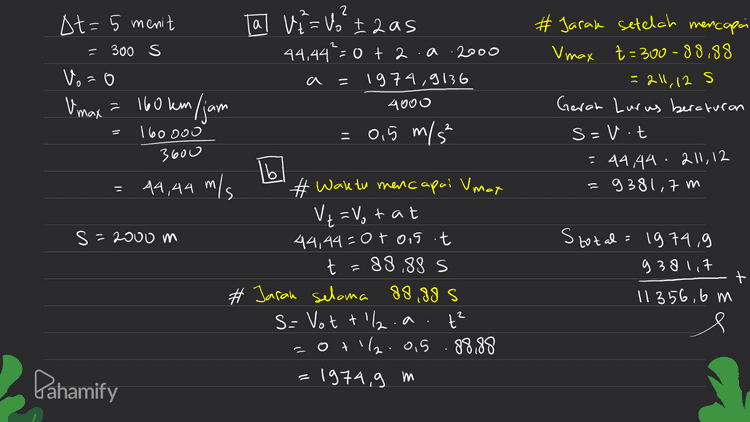 Δt = 5 menit
= 300 s
V₀ = 0
Vmax = 160 km/jam
= 160 000
3600
= 44,44 m/s
S = 2000 m
a Vt² = V₀² ± 2as
44,44² = 0 + 2 . a . 2000
a = 1974,9136
4000
= 0,5 m/s²
b
# Waktu mencapai Vmax
Vt = V₀ + at
44,44 = 0 + 0,5 . t
t = 88,88 s
# Jarak selama 88,88 s
S = V₀t + 1/2 . a . t²
= 0 + 1/2 . 0,5 . 88,88
= 1974,9 m
# Jarak setelah mencapai
Vmax t = 300 - 88,88
= 211,12 s
Gerak Lurus beraturan
S = V . t
= 44,44 . 211,12
= 9381,7 m
Stotal = 1974,9
9381,7 +
11356,6 m
Pahamify